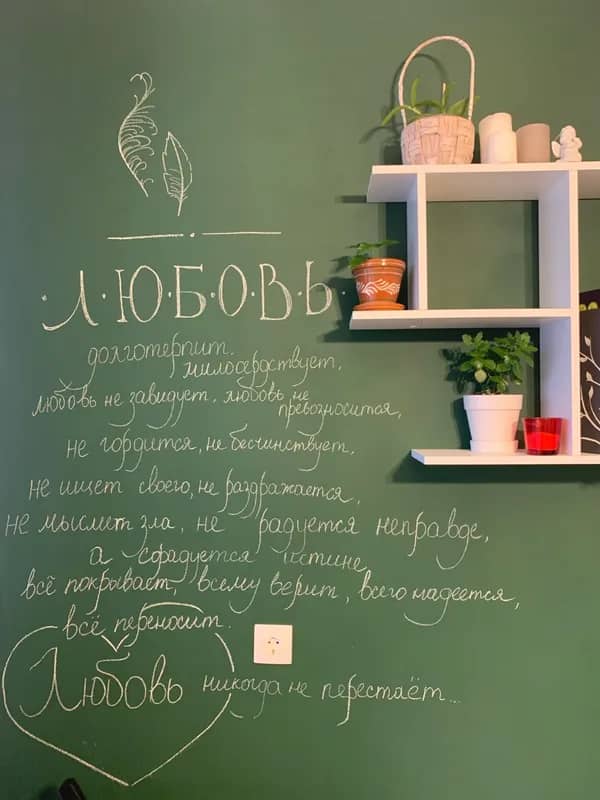 ·Л·Ю·Б·О·В·Ь·
долготерпит,
милосердствует,
любовь не завидует, любовь не
превозносится,
не гордится, не бесчинствует,
не ищет своего, не раздражается,
не мыслит зла, не радуется неправде,
а сорадуется истине,
всё покрывает, всему верит, всего надеется,
всё переносит.
Любовь никогда не перестаёт...